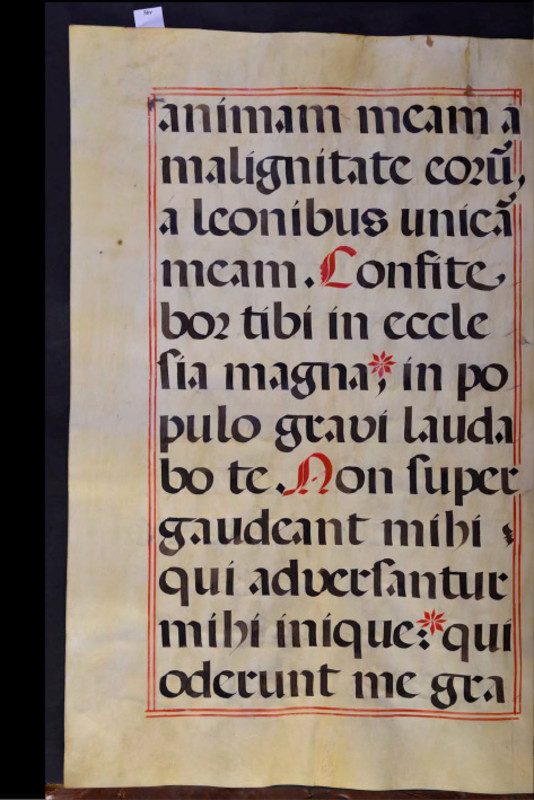 animam meam a
malignitate eorũ,
a leonibus unicã
meam. Confite
bor tibi in eccle
sia magna; in po
pulo gravi lauda
bo te. Non super
gaudeant mihi
qui adversantur
mihi inique: qui
oderunt me gra